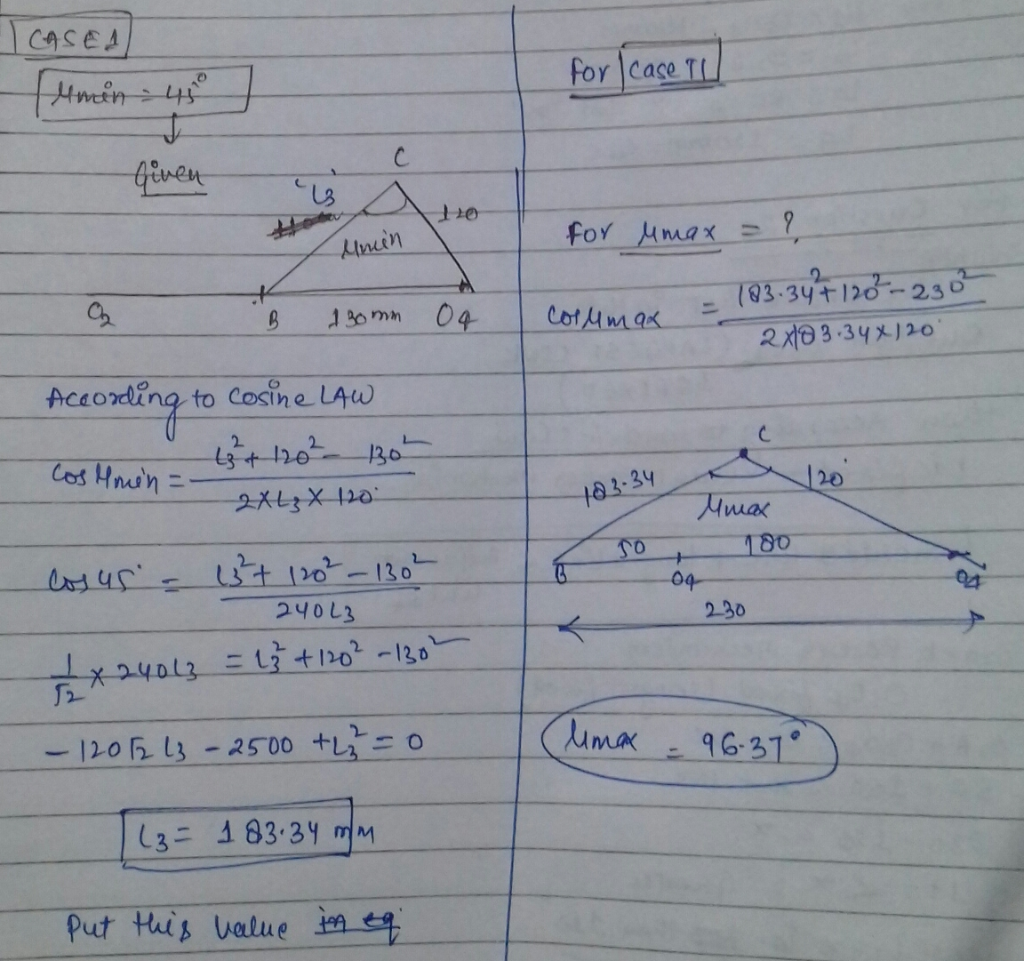 CASE 1
μmin = 45°
↓
Given
C
'L3'
120
μmin
O2 B 130mm O4
According to Cosine LAW
Cos μmin = (L3² + 120² - 130²) / (2 × L3 × 120)
Cos 45° = (L3² + 120² - 130²) / (240 L3)
1/√2 × 240 L3 = L3² + 120² - 130²
- 120√2 L3 - 2500 + L3² = 0
L3 = 183.34 mm
Put this value in eq
For Case II
For μmax = ?
Cos μmax = (183.34² + 120² - 230²) / (2 × 183.34 × 120)
C
183.34 120
μmax
50 180
B O4 O4
230
μmax = 96.37°